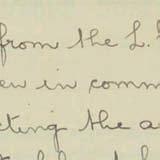 from the L.
ew in comm
cting the a